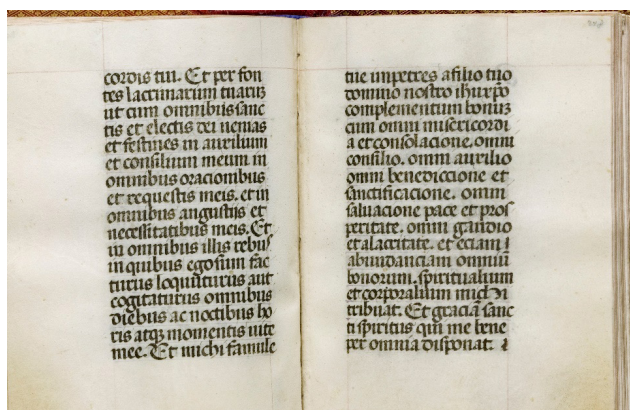 cordis tui. Et per fon
tes lacrimarum tuarum
ut cum omnibus sanc
tis et electis dei venias
et festines in auxilium
et consilium meum in
omnibus oracionibus
et requestis meis. et in
omnibus angustiis et
necessitatibus meis. Et
in omnibus illis rebus
in quibus ego sum fac
turus loquuturus aut
cogitaturus omnibus
diebus ac noctibus ho
ris atqꝫ momentis vite
mee. Et michi famule
tue impetres a filio tuo
domino nostro ihu xp̃o
complementum bonuꝫ
cum omni misericordi
a et consolacione. omni
consilio. omni auxilio
omni benediccione et
sanctificacione. omni
saluacione pace et pros
peritate. omni gaudio
et alacritate. et eciam
abundanciam omniũ
bonorum. spiritualium
et corporalium michi
tribuat. Et graciã sanc
ti spiritus qui me bene
per omnia disponat.